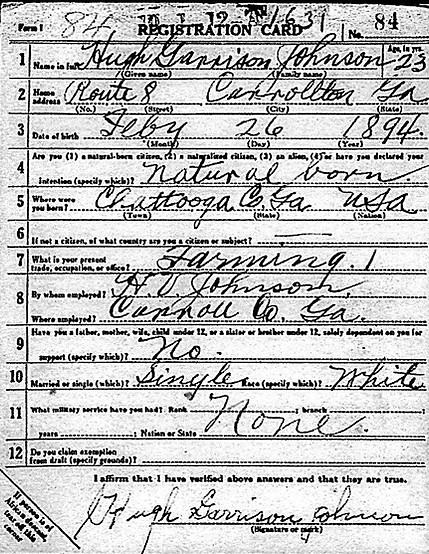 Form 1 84 No. 84
REGISTRATION CARD
1 Name in full Hugh Garrison Johnson Age, in yrs. 23
(Given name) (Family name)
2 Home address Route 8 Carrollton Ga
(No.) (Street) (City) (State)
3 Date of birth Feby 26 1894
(Month) (Day) (Year)
4 Are you (1) a natural-born citizen, (2) a naturalized citizen, (3) an alien, (4) or have you declared your
intention (specify which)? Natural born
5 Where were you born? Chattooga Co. Ga USa
(Town) (State) (Nation)
6 If not a citizen, of what country are you a citizen or subject?
7 What is your present trade, occupation, or office? Farming 1
8 By whom employed? H. D. Johnson
Where employed? Carroll Co, Ga.
9 Have you a father, mother, wife, child under 12, or a sister or brother under 12, solely dependent on you for
support (specify which)? No.
10 Married or single (which)? Single Race (specify which)? White
11 What military service have you had? Rank ; branch ;
years ; Nation or State None.
12 Do you claim exemption from draft (specify grounds)?
I affirm that I have verified above answers and that they are true.
Hugh Garrison Johnson
(Signature or mark)
If person is of
African descent,
tear off this
corner